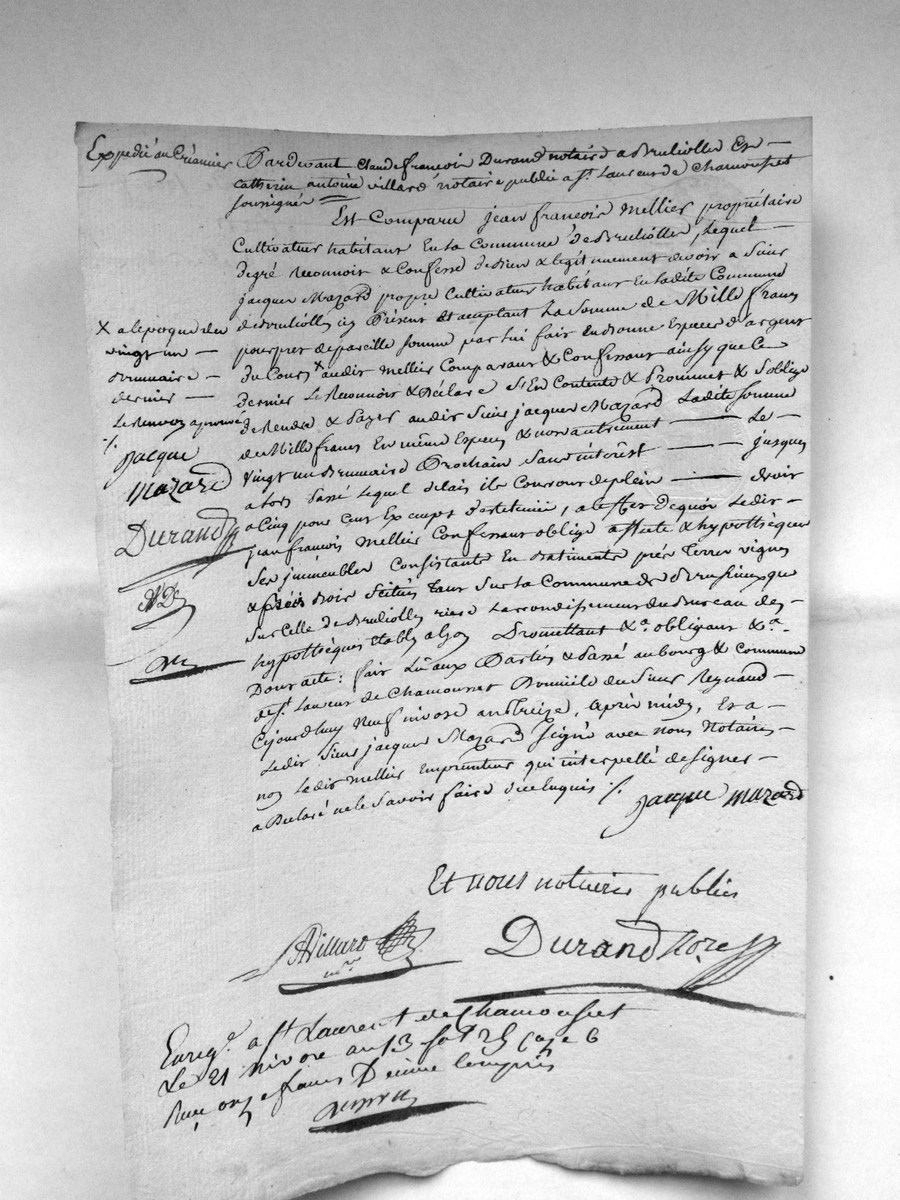 Expedié au Créancier
Pardevant Claude francois Durand notaire a Brulliolles Et
Catherin antoine villard notaire public a St. Laurent de Chamousset
soussignés
Est Comparu jean francois Mellier propriétaire
Cultivateur habitant En la Commune de Brulliolles, Lequel
de gré reconnoit & Confesse de Bien & legitimement devoir a Sieur
jacques Mazard propre Cultivateur habitant En ladite Commune
de Brulliolles icy Present Et acceptant La Somme de Mille francs
pour pret de pareille somme par lui fait En bonne Especes d'argent
du Cours X audit Mellier Comparant & Confessant ainsy que Ce
dernier Le Reconnoit & déclare S'En Contente & Promet & S'oblige
de Rendre & Payer audit Sieur jacques Mazard Ladite Somme
de Mille francs En même Especes & non autrement Le
vingt un Brumaire Prochain Sans intérêt jusques
a lors Passé Lequel delais ils Courront de plein droit
a Cinq pour Cent Exempts de retenue, a l'effet de quoi Ledit
jean francois Mellier Confessant oblige affecte & hypothèque
Ses immeubles Consistants En Batiments prés Terres vignes
& Bois Scitués Tant Sur La Commune de Brussieux que
Sur Celle de Brulliolles rière L'arrondissement du Bureau des
hypothèques Etably a Lyon Promettant &a. obligeant &a.
Dont acte: fait Lu aux Parties & Passé au bourg & Commune
de St. Laurent de Chamousset Domicile du Sieur Reynaud
Cejourd'huy Neuf nivose an treize, après midy, Et a
Ledit Sieur jacques Mazard Signé avec nous Notaires
non Ledit Mellier Emprunteur qui interpellé de signer
a Declaré ne le Savoir faire de ce Enquis /.
jacque mazard
X a l'epoque du
vingt un
Brumaire
dernier
Le Renvoy approuvé
/.
jacque
mazard
Durand
Et nous notaires publics
Villard
nre
Durand Nore
Enregé. a St Laurent de Chamousset
Le 21 nivose an 13 fol 25 Case 6
Reçu onze francs Decime Compris